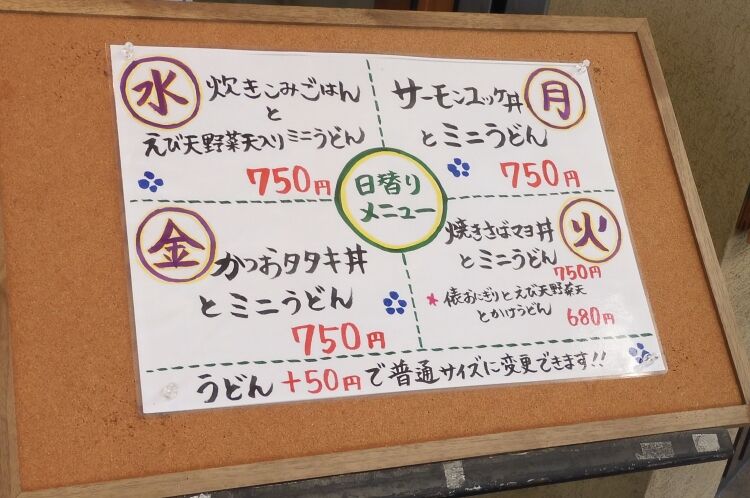 日替り
メニュー
月
サーモンユッケ丼
とミニうどん
750円
火
焼きさばマヨ丼
とミニうどん
750円
*俵おにぎりとえび天野菜天
とかけうどん
680円
水
炊きこみごはん
と
えび天野菜天入りミニうどん
750円
金
かつおタタキ丼
とミニうどん
750円
うどん+50円で普通サイズに変更できます!!